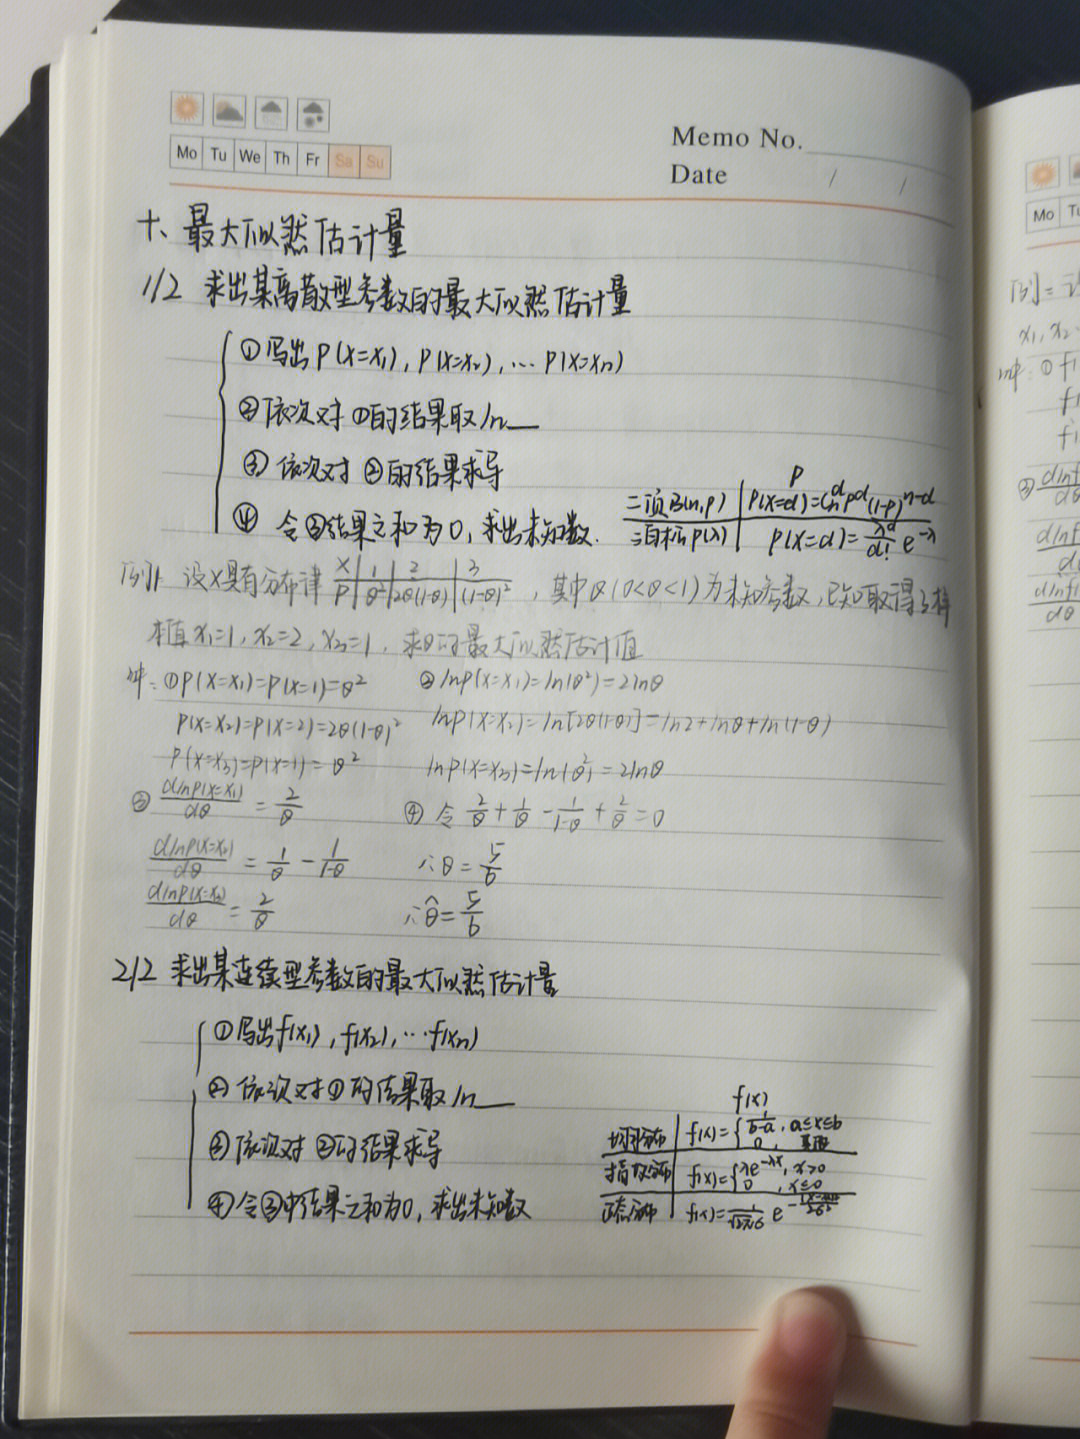 Memo No.
Mo Tu We Th Fr Sa Su
Date / /
十、最大似然估计量
1/2 求出某离散型参数的最大似然估计量
①写出P(X=x₁), P(X=x₂), … P(X=xn)
②依次对①的结果取ln__
③依次对②的结果求导
④令③结果之和为0, 求出未知数.
P
二项B(n,p) P(X=d)=Cₙᵈpᵈ(1-p)ⁿ⁻ᵈ
泊松P(λ) P(X=d)=λᵈ/d! e^-λ
例1: 设X具有分布律 X 1 2 3
P θ² 2θ(1-θ) (1-θ)² , 其中θ(0<θ<1)为未知参数, 已知取得了样
本值x₁=1, x₂=2, x₃=1, 求θ的最大似然估计值
解: ①P(X=x₁)=P(X=1)=θ² ②lnP(X=x₁)=ln(θ²)=2lnθ
P(X=x₂)=P(X=2)=2θ(1-θ)² lnP(X=x₂)=ln[2θ(1-θ)]=ln2+lnθ+ln(1-θ)
P(X=x₃)=P(X=1)=θ² lnP(X=x₃)=ln(θ²)=2lnθ
③ dlnP(X=x₁)/dθ = 2/θ ④ 令 2/θ + 1/θ - 1/1-θ + 2/θ = 0
dlnP(X=x₂)/dθ = 1/θ - 1/1-θ ∴θ = 5/6
dlnP(X=x₃)/dθ = 2/θ ∴θ̂ = 5/6
2/2 求出某连续型参数的最大似然估计量
①写出f(x₁), f(x₂), … f(xn)
② 依次对①的结果取ln__
③ 依次对②的结果求导
④ 令③中结果之和为0, 求出未知数
f(x)
均匀分布 f(x)={1/b-a, a≤x≤b
0, 其他
指数分布 f(x)={λe^-λx, x>0
0, x≤0
正态分布 f(x)=1/√2πσ e^-(x-μ)²/2σ²
Mo Tu
x₁, x₂
解: ①